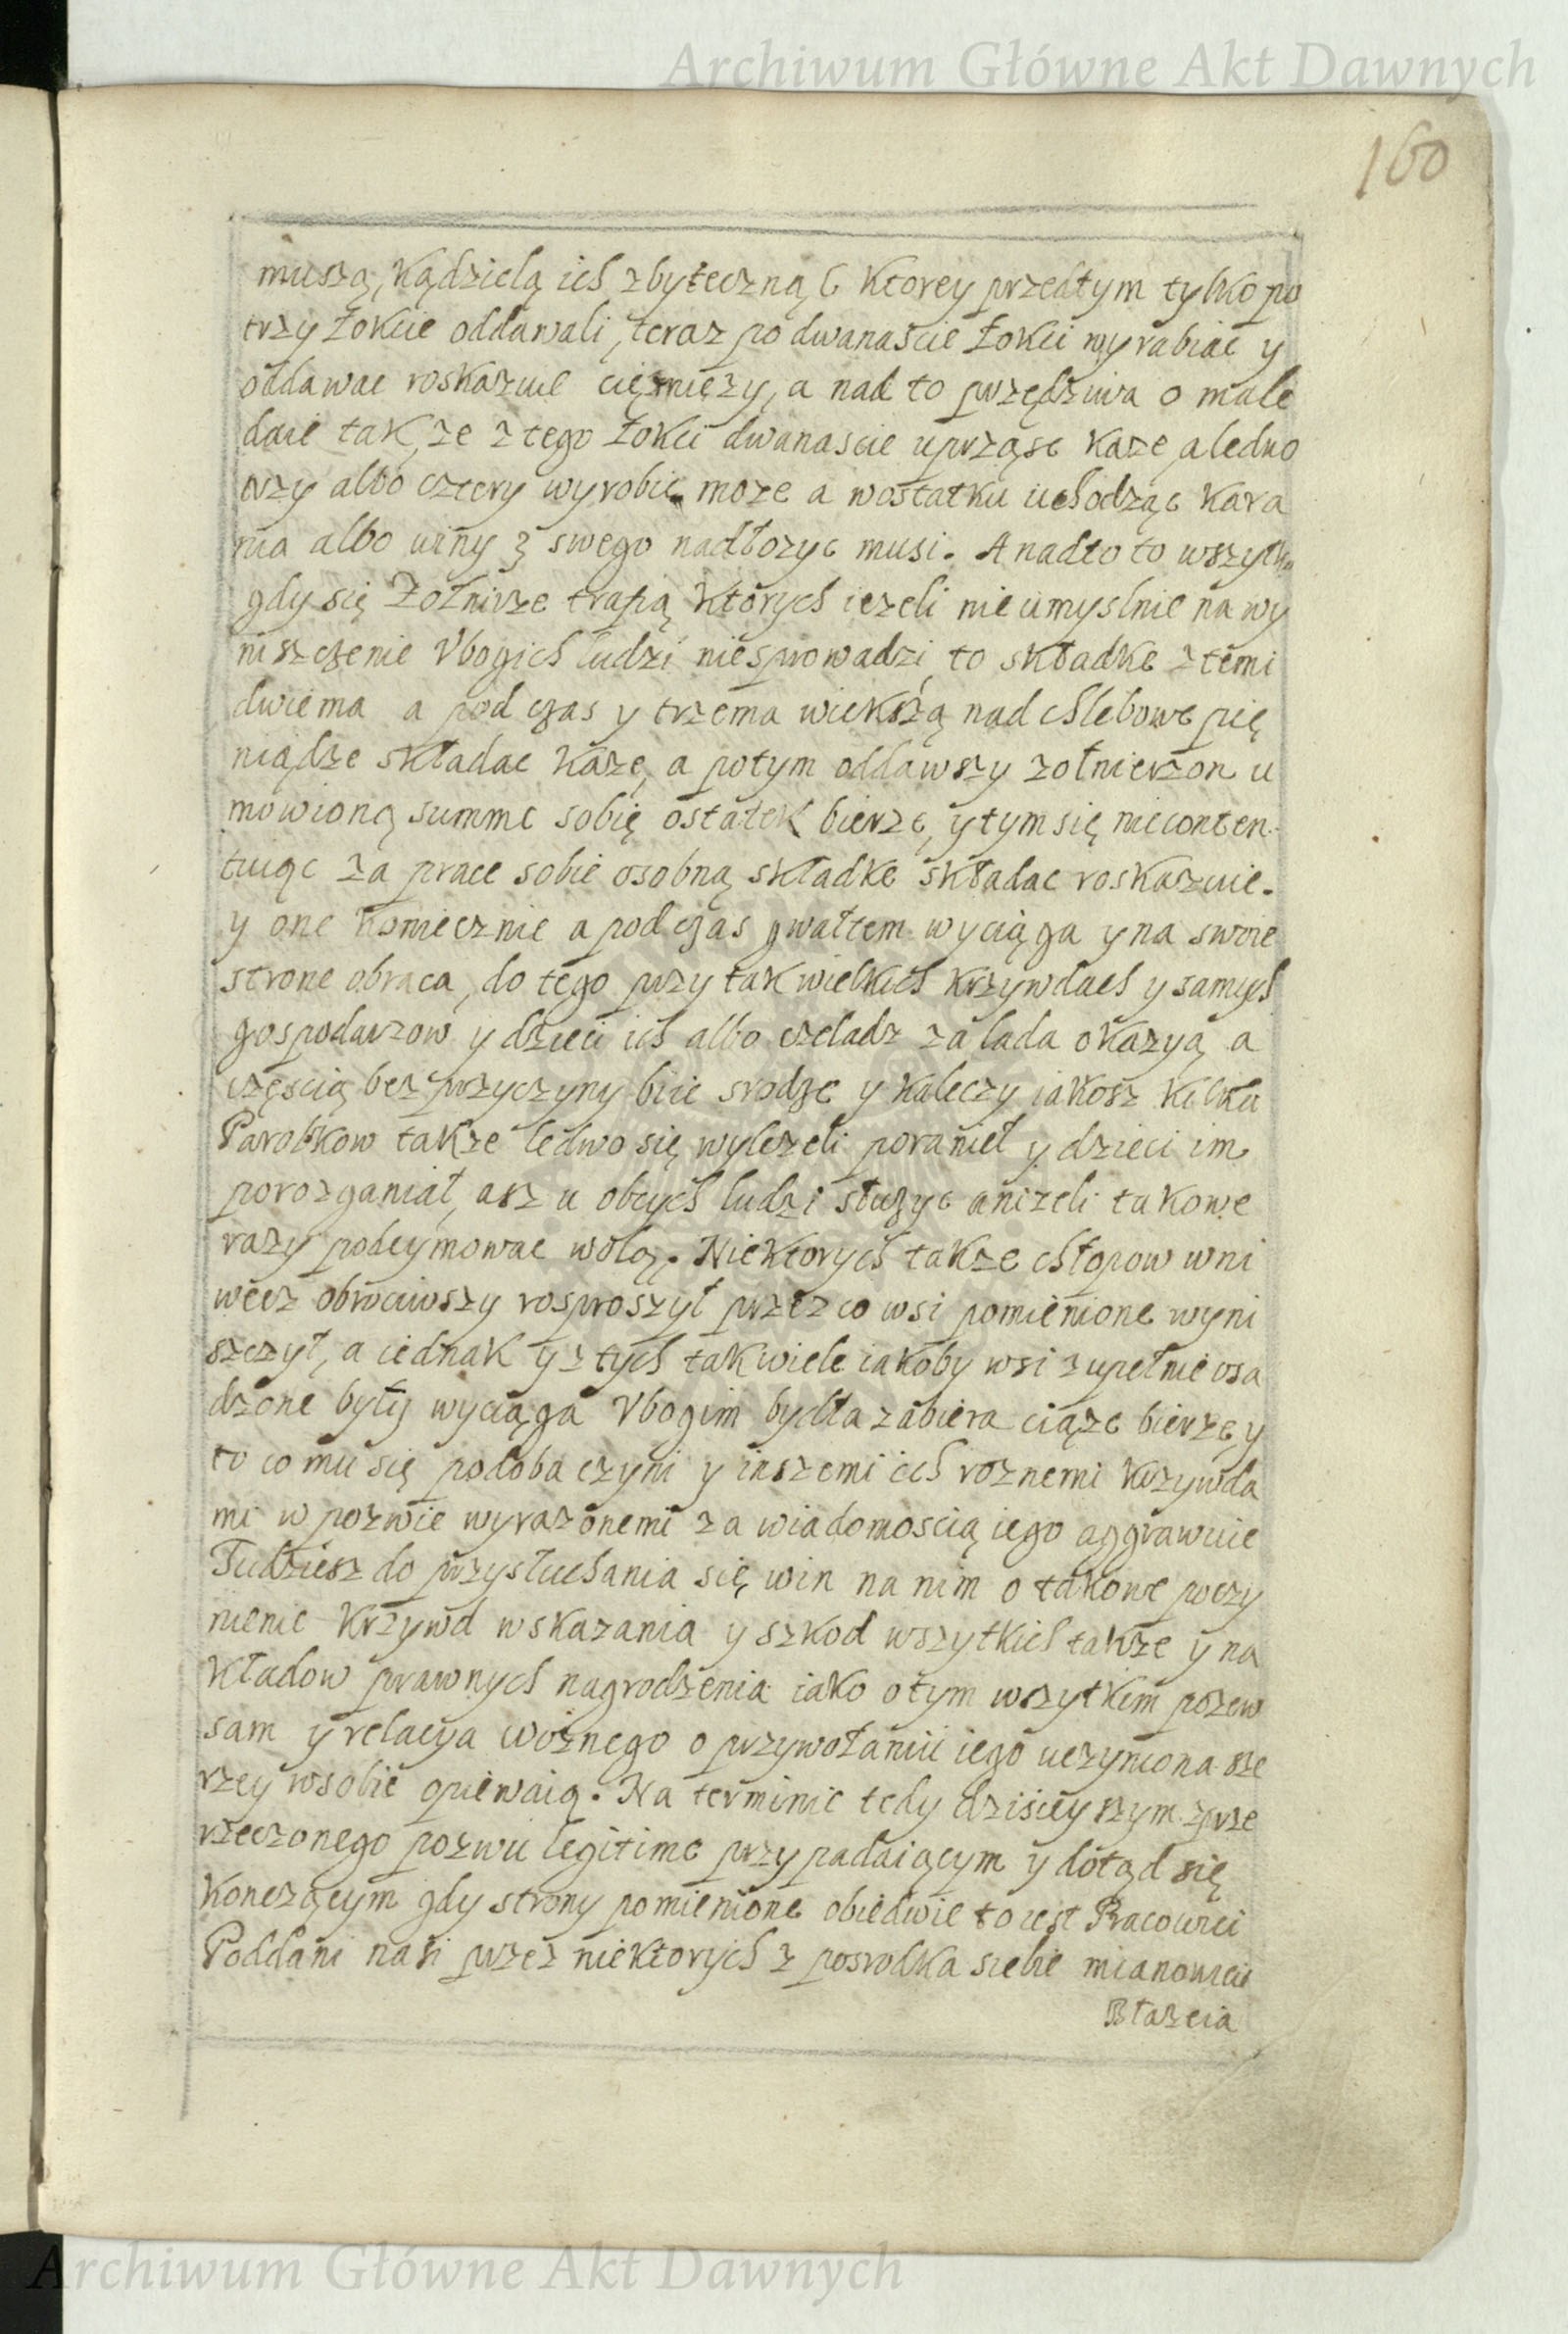 Archiwum Główne Akt Dawnych
160
muszą, Kądzielą ich zbyteczną ( Ktorey przedtym tylko po
trzy Łokcie oddawali, teraz po dwanaście Łokci wyrabiac y
oddawac roskazuie ciężnieży, a nad to przędziwa o male
daie tak, ze z tego Łokci dwanascie uprząsc kaze, aledwo
trzy albo cztery wyrobic moze a wostatku uchodząc Kara
nia albo winy z swego nadłozyc musi. A nadto to wszytko
gdy się Zołnirze trafią Których iezeli nie umyslnie na wy
niszczenie Vbogich ludzi niesprowadzi, to składke z temi
dwiema a pod czas y trzema wiekszą nad chlebowe pię
niądze składac każe, a potym oddawszy zołnierzon u
mowioną summe sobię ostatek bierze, y tym się nieconten
tuiąc za prace sobie osobną składke składac roskazuie.
y one koniecznie a podczas gwałtem wyciąga y na swoie
strone obraca, do tego przy tak wielkich krzywdach y samych
gospodarzow y dzieci ich albo czeladz za lada okazyą a
częscią bez przyczyny biie srodze y kaleczy iakosz kilku
Parobkow takze ledwo się wylezeli poranieł y dzieci im
porozganiał, asz u obcych ludzi słuzyc anizeli takowe
razy podeymowac wolą. Niektorych takze chłopow wni
wecz obrociwszy rosproszył przez co wsi pomienione wyni
szczył, a iednak y z tych tak wiele iakoby wsi zupełnie osa
dzone były wyciąga Vbogim bydła zabiera ciąze bierze, y
to co mu się podoba czyni y inszemi ich roznemi krzywda
mi w pozwie wyrazonemi za wiadomoscią iego aggrawuie
Tudziesz do przysłuchania się win na nim o takowe poczy
nienie krzywd wskazania y szkod wszytkich takze y na
kładow prawnych nagrodzenia iako o tym wszytkim pozew
sam y relacya woznego o przywołaniu iego uczyniona sze
rzey wsobie opiewaią. Na terminie tedy dzisieyszym z prze
rzeczonego pozwu legitime przypadaiącym y dotąd się
konczącym gdy strony pomienione obiedwie to iest Pracowici
Poddani nasi przez niektorych z posrodka siebie mianowicie
Błazeia
Archiwum Główne Akt Dawnych